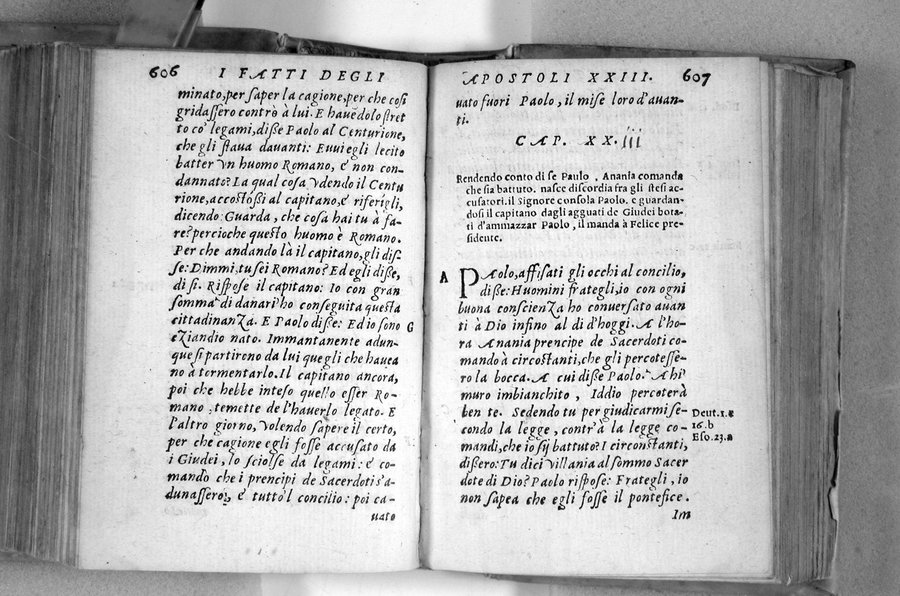 606 I FATTI DEGLI
minato, per saper la cagione, per che cosi
gridassero contrò à lui. E havēdolo stret
to co' legami, disse Paolo al Centurione,
che gli stava davanti: Evvi egli lecito
batter vn huomo Romano, e non con-
dannato? La qual cosa vdendo il Centu
rione, accostossi al capitano, e riferigli,
dicendo: Guarda, che cosa hai tu à fa-
re? percioche questo huomo è Romano.
Per che andando là il capitano, gli dis-
se: Dimmi, tu sei Romano? Ed egli disse,
di si. Rispose il capitano: Io con gran
somma di danari ho conseguita questa
cittadinanza. E Paolo disse: Ed io sono
eziandio nato. Immantanente adun-
que si partirono da lui quegli che havea
no à tormentarlo. Il capitano ancora,
poi che hebbe inteso quello esser Ro-
mano, temette de l'haverlo legato. E
l'altro giorno, volendo sapere il certo,
per che cagione egli fosse accusato da
i Giudei, lo sciolse da legami: e co-
mandò che i prencipi de Sacerdoti s'a-
dunassero, e tutto'l concilio: poi ca-
uato
G
APOSTOLI XXIII. 607
uato fuori Paolo, il mise loro d'auan-
ti.
CAP. XX.iii
Rendendo conto di se Paulo, Anania comanda
che sia battuto. nasce discordia fra gli stesi ac-
cusatori. il Signore consola Paolo. e guardan-
dosi il capitano dagli agguati de Giudei bota-
ti d'ammazzar Paolo, il manda à Felice pre-
sidente.
A
PAolo, affisati gli occhi al concilio,
disse: Huomini frategli, io con ogni
buona conscienza ho conversato auan
ti à Dio infino al di d'hoggi. A l'ho-
ra Anania prencipe de Sacerdoti co-
mandò à circostanti, che gli percotesse-
ro la bocca. A cui disse Paolo. Ahi
muro imbianchito, Iddio percoterà
ben te. Sedendo tu per giudicarmi se-
condo la legge, contr'à la legge co-
mandi, che io sij battuto? I circonstanti,
dissero: Tu dici villania al sommo Sacer
dote di Dio? Paolo rispose: Frategli, io
non sapea che egli fosse il pontefice.
Im
Deut. 1.
16. b
Eso. 23. a